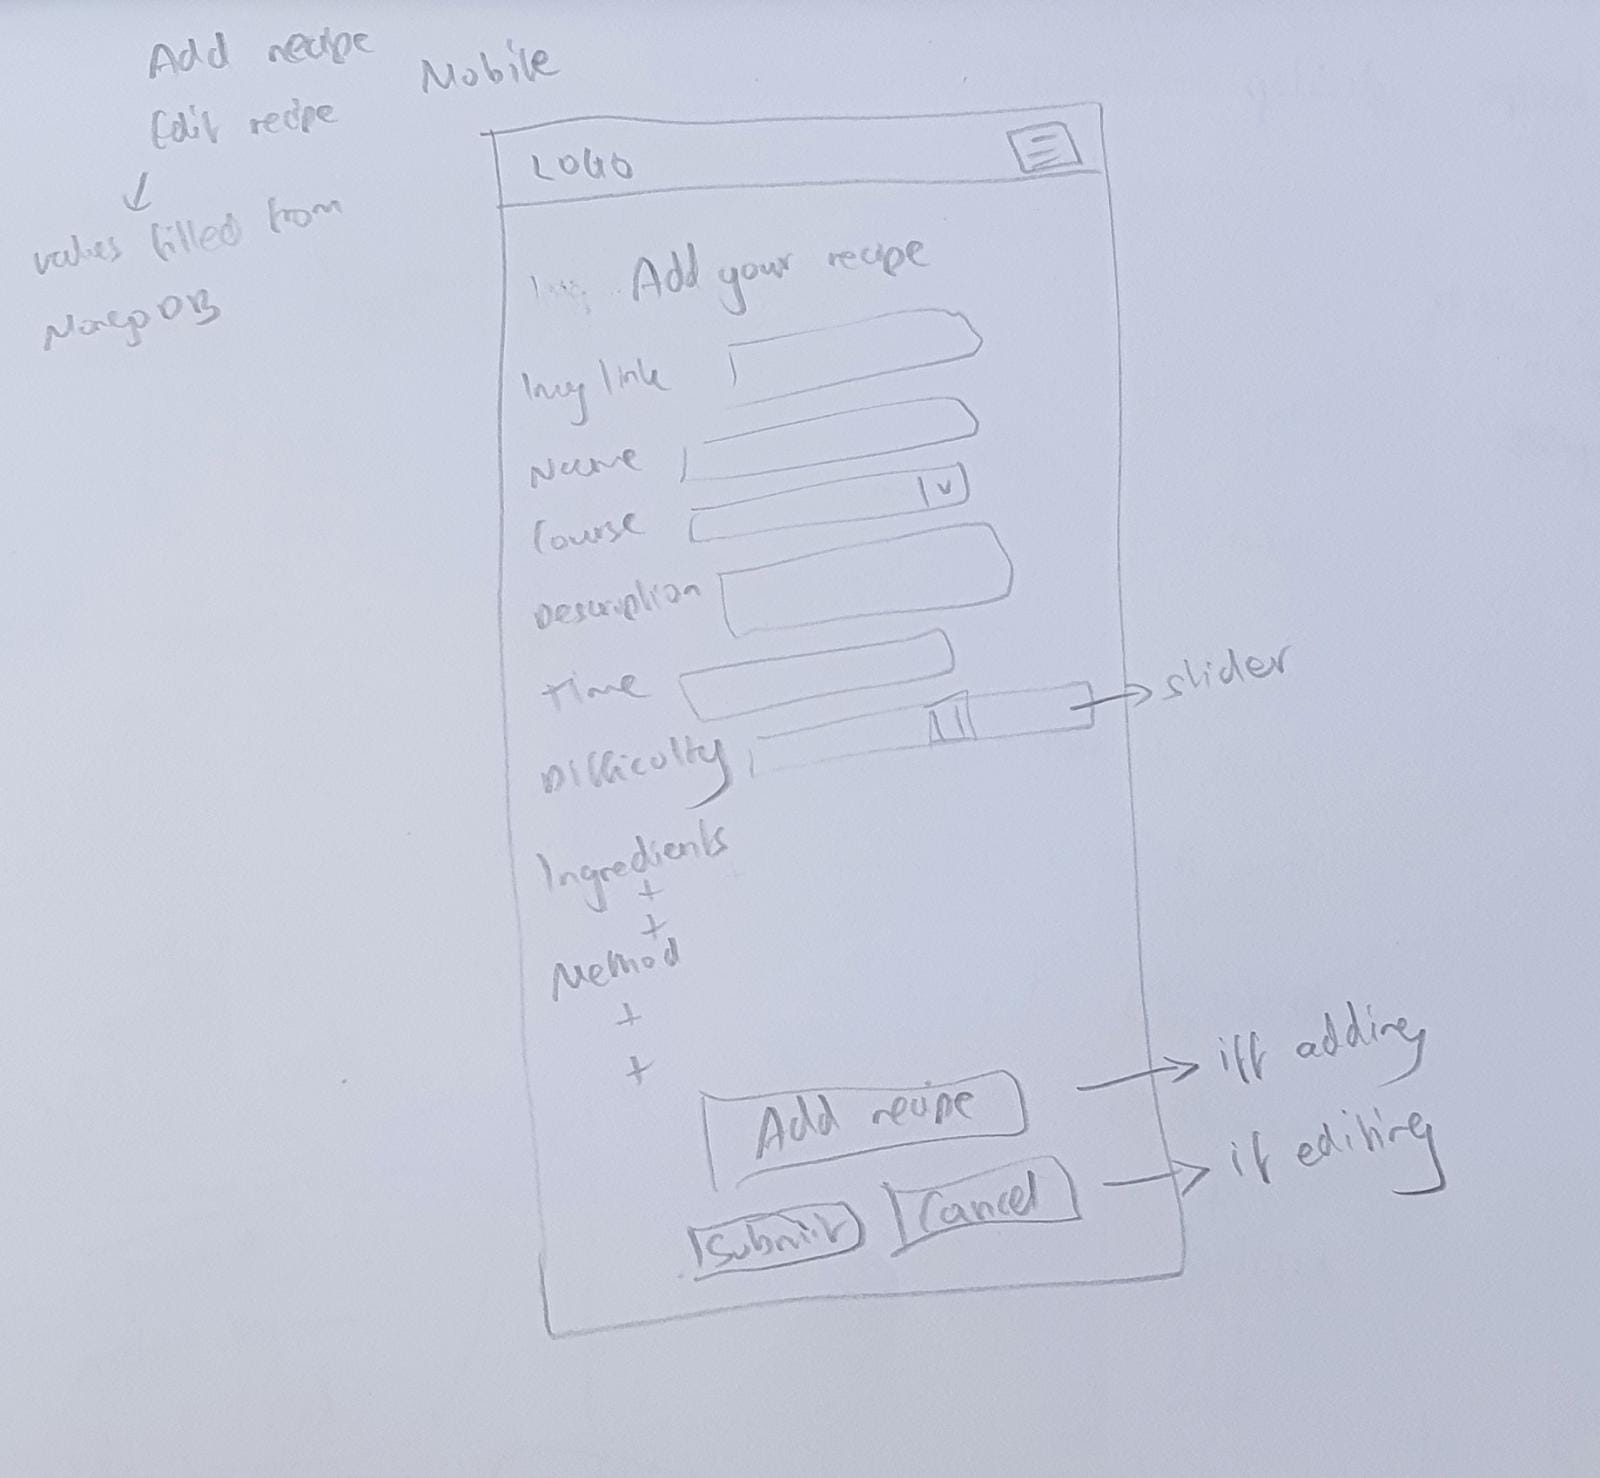 Add recipe
Edit recipe
values filled from
MongoDB
Mobile
LOGO
Add your recipe
Img link
Name
Course
Description
Time
Difficulty
slider
Ingredients
+
+
Method
+
+
Add recipe
iff adding
Submit
Cancel
if editing